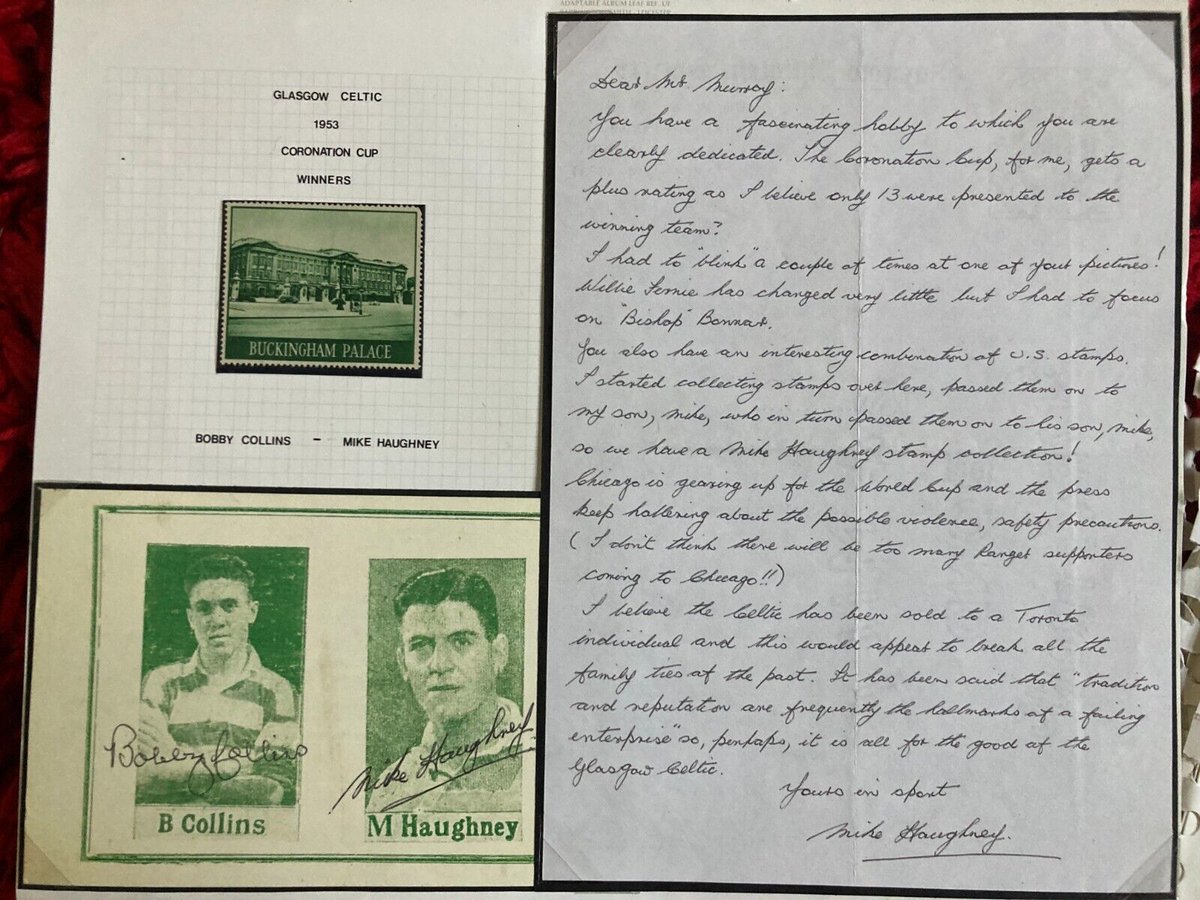 ADAPTABLE ALBUM LEAF REF. UF
GLASGOW CELTIC
1953
CORONATION CUP
WINNERS
BUCKINGHAM PALACE
BOBBY COLLINS - MIKE HAUGHNEY
Bobby Collins
B Collins
Mike Haughney
M Haughney
Dear Mr. Murray:
You have a fascinating hobby to which you are
clearly dedicated. The Coronation Cup, for me, gets a
plus rating as I believe only 13 were presented to the
winning team?
I had to "blink" a couple of times at one of your pictures!
Willie Fernie has changed very little but I had to focus
on "Bishop" Bonnar.
You also have an interesting combination of U.S. stamps.
I started collecting stamps over here, passed them on to
my son, Mike, who in turn passed them on to his son, Mike,
so we have a Mike Haughney stamp collection!
Chicago is gearing up for the World Cup and the press
keep hollering about the possible violence, safety precautions.
(I don't think there will be too many Ranger supporters
coming to Chicago!!)
I believe the Celtic has been sold to a Toronto
individual and this would appear to break all the
family ties of the past. It has been said that "tradition
and reputation are frequently the hallmarks of a failing
enterprise" so, perhaps, it is all for the good of the
Glasgow Celtic.
Yours in sport
Mike Haughney.